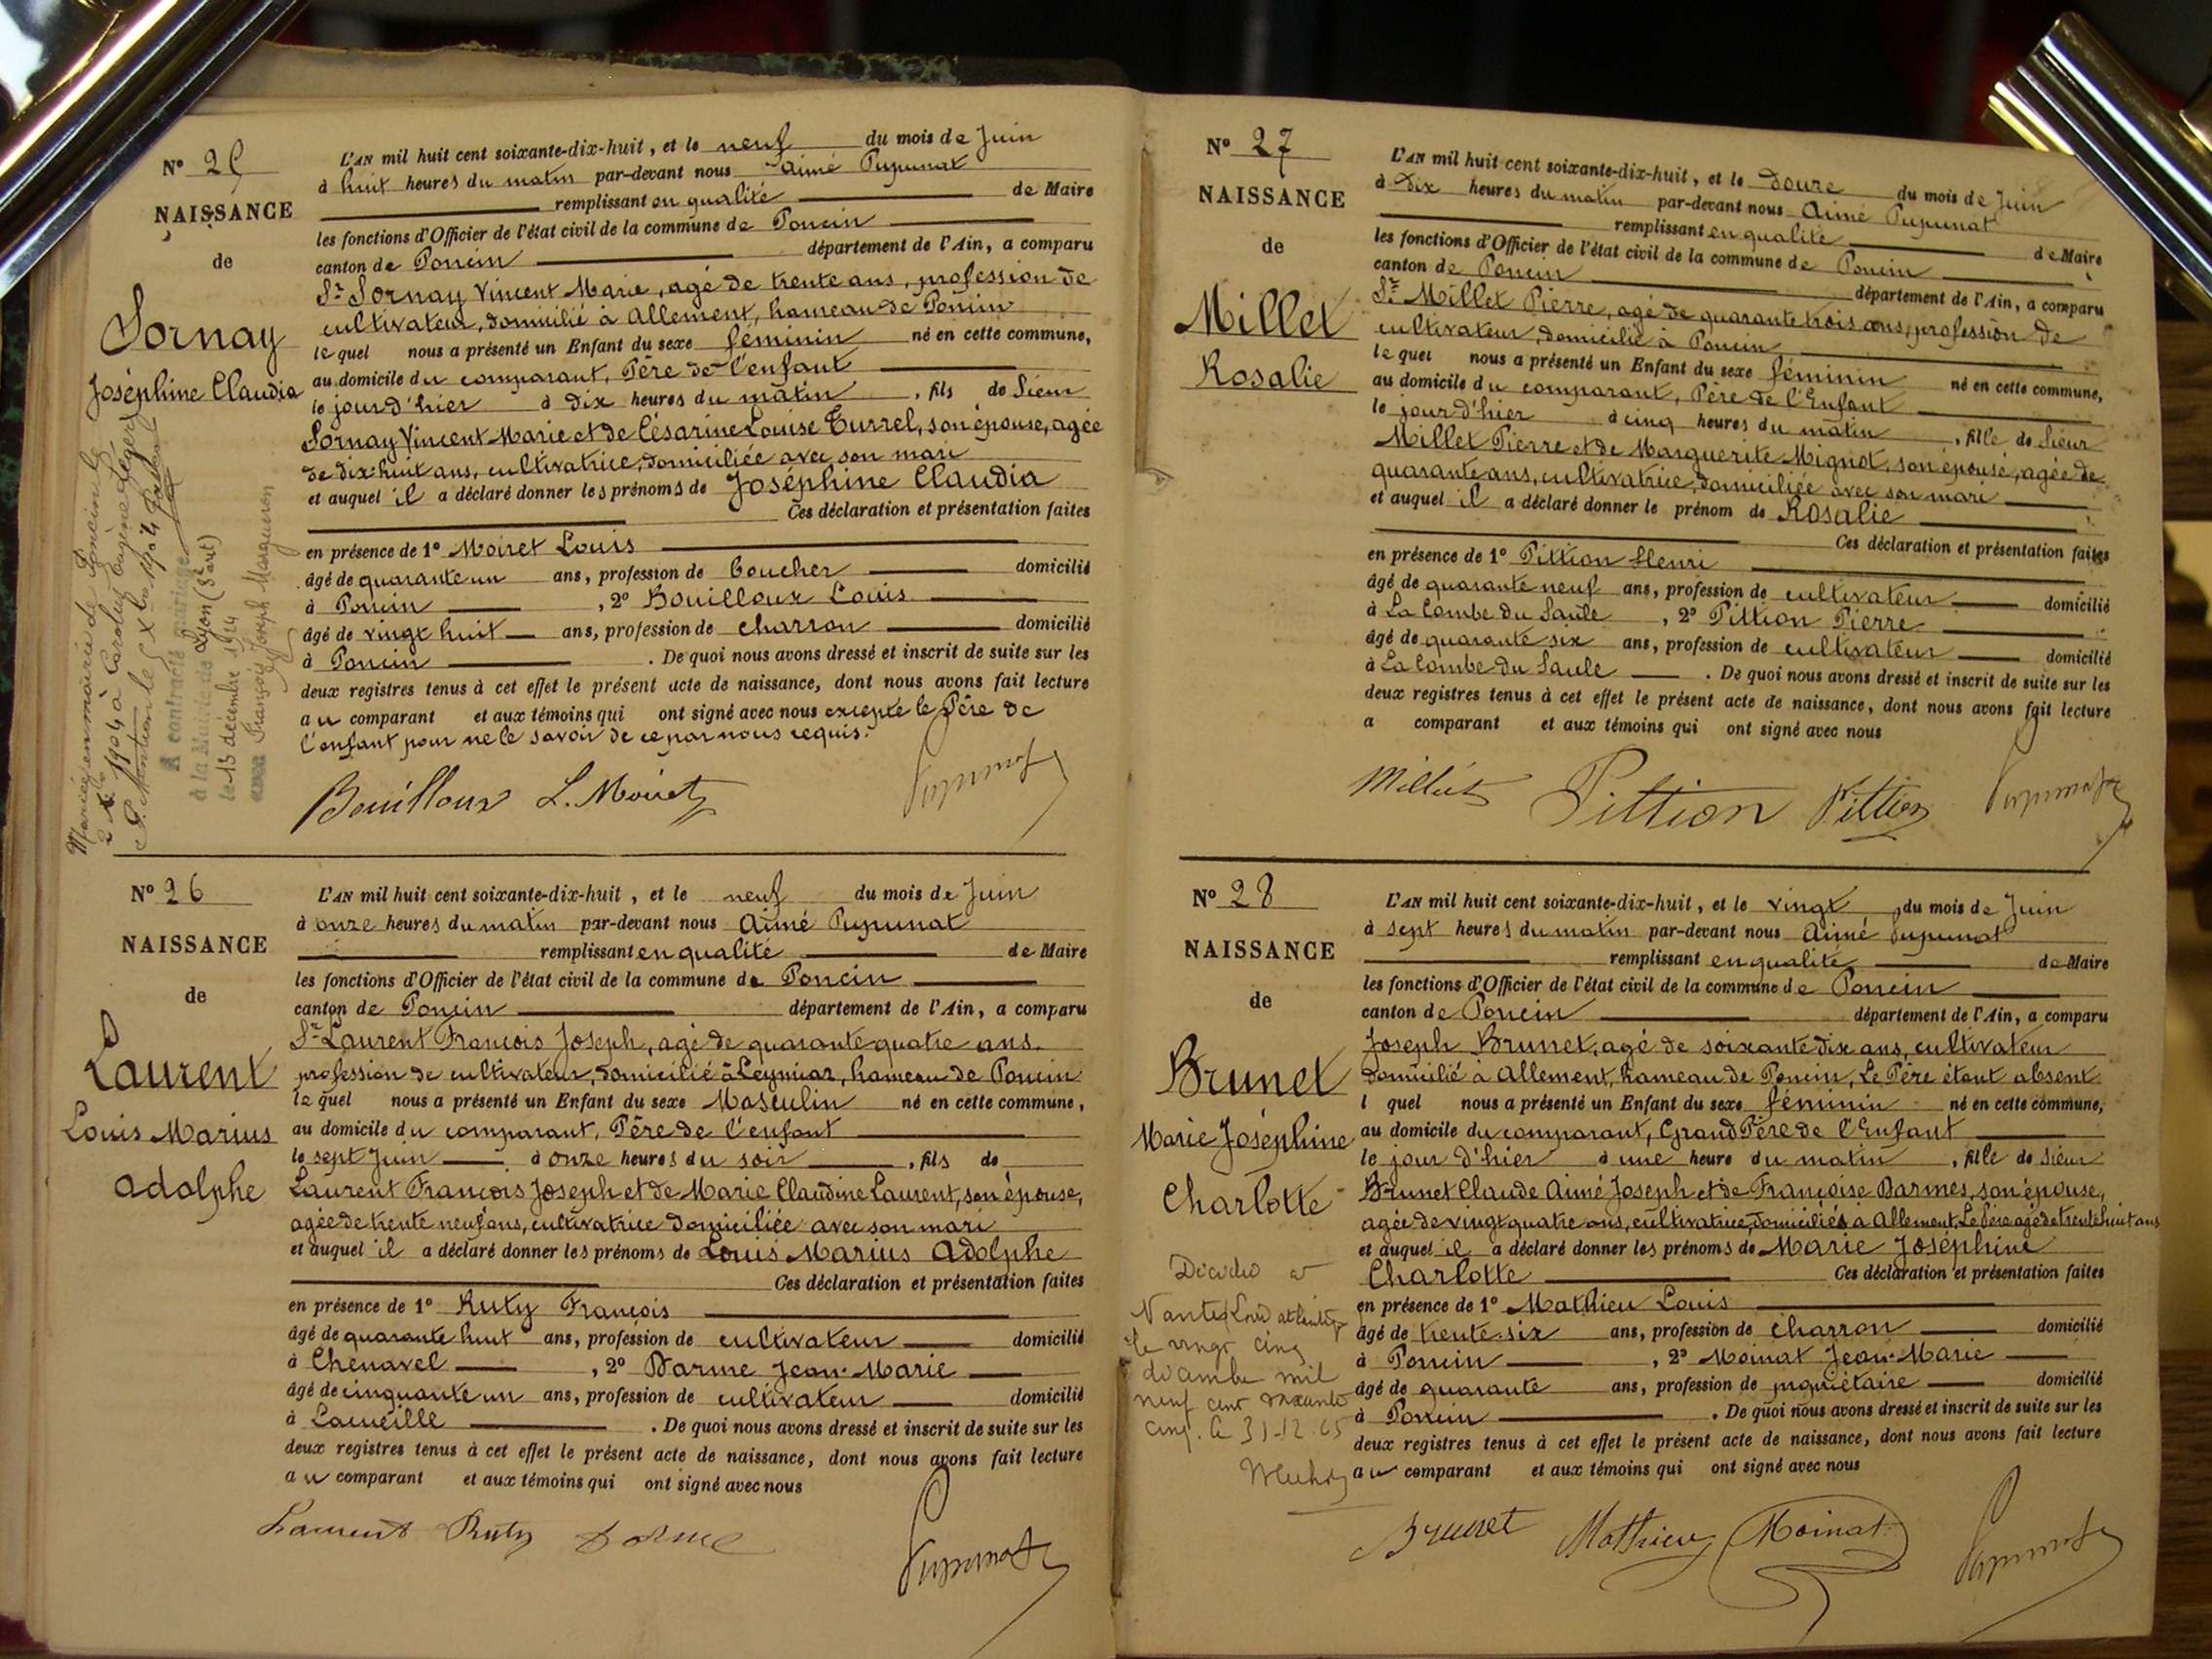 N° 25
NAISSANCE
de
Sornay
Joséphine Claudia
Mariée en mairie de Poncin le
1904 à Carolus Eugène Léger
A contracté mariage
à la Mairie de Lyon (3e art)
le 15 décembre 1914
avec François Joseph Marqueron
L'AN mil huit cent soixante-dix-huit, et le neuf du mois de Juin
à huit heures du matin par-devant nous Aimé Pupunat
remplissant en qualité de Maire
les fonctions d'Officier de l'état civil de la commune de Poncin
canton de Poncin département de l'Ain, a comparu
Sr Sornay Vincent Marie, agé de trente ans, profession de
cultivateur, domicilié à Allement, hameau de Poncin
lequel nous a présenté un Enfant du sexe féminin né en cette commune,
au domicile du comparant, Père de l'enfant
le jour d'hier à dix heures du matin, fils de Sieur
Sornay Vincent Marie et de Césarine Louise Turrel, son épouse, agée
de dix-huit ans, cultivatrice, domiciliée avec son mari
et auquel il a déclaré donner les prénoms de Joséphine Claudia
Ces déclaration et présentation faites
en présence de 1° Moiret Louis
âgé de quarante un ans, profession de boucher domicilié
à Poncin, 2° Bouilloux Louis
âgé de vingt huit ans, profession de charron domicilié
à Poncin. De quoi nous avons dressé et inscrit de suite sur les
deux registres tenus à cet effet le présent acte de naissance, dont nous avons fait lecture
au comparant et aux témoins qui ont signé avec nous excepté le Père de
l'enfant pour ne le savoir de ce par nous requis.
Bouilloux L. Moiret Pupunat
N° 26
NAISSANCE
de
Laurent
Louis Marius
Adolphe
L'AN mil huit cent soixante-dix-huit, et le neuf du mois de Juin
à onze heures du matin par-devant nous Aimé Pupunat
remplissant en qualité de Maire
les fonctions d'Officier de l'état civil de la commune de Poncin
canton de Poncin département de l'Ain, a comparu
Sr Laurent François Joseph, agé de quarante quatre ans.
profession de cultivateur, domicilié à Leymiar, hameau de Poncin
lequel nous a présenté un Enfant du sexe Masculin né en cette commune,
au domicile du comparant, Père de l'enfant
le sept Juin à onze heures du soir, fils de
Laurent François Joseph et de Marie Claudine Laurent, son épouse,
agée de trente neuf ans, cultivatrice domiciliée avec son mari
et auquel il a déclaré donner les prénoms de Louis Marius Adolphe
Ces déclaration et présentation faites
en présence de 1° Ruty François
âgé de quarante huit ans, profession de cultivateur domicilié
à Chenavel, 2° Darme Jean-Marie
âgé de cinquante un ans, profession de cultivateur domicilié
à Lacueille. De quoi nous avons dressé et inscrit de suite sur les
deux registres tenus à cet effet le présent acte de naissance, dont nous avons fait lecture
au comparant et aux témoins qui ont signé avec nous
Laurent Ruty Darme Pupunat
N° 27
NAISSANCE
de
Millet
Rosalie
L'AN mil huit cent soixante-dix-huit, et le douze du mois de Juin
à dix heures du matin par-devant nous Aimé Pupunat
remplissant en qualité de Maire
les fonctions d'Officier de l'état civil de la commune de Poncin
canton de Poncin département de l'Ain, a comparu
Sr Millet Pierre, agé de quarante trois ans, profession de
cultivateur, domicilié à Poncin
lequel nous a présenté un Enfant du sexe féminin né en cette commune,
au domicile du comparant, Père de l'Enfant
le jour d'hier à cinq heures du matin, fille de Sieur
Millet Pierre et de Marguerite Mignot, son épouse, agée de
quarante ans, cultivatrice, domiciliée avec son mari
et auquel il a déclaré donner le prénom de Rosalie
Ces déclaration et présentation faites
en présence de 1° Pittion Henri
âgé de quarante neuf ans, profession de cultivateur domicilié
à La Combe du Saule, 2° Pittion Pierre
âgé de quarante six ans, profession de cultivateur domicilié
à La Combe du Saule. De quoi nous avons dressé et inscrit de suite sur les
deux registres tenus à cet effet le présent acte de naissance, dont nous avons fait lecture
a comparant et aux témoins qui ont signé avec nous
Millet Pittion Pittion Pupunat
N° 28
NAISSANCE
de
Brunet
Marie Joséphine
Charlotte
Décédée à
Nantes Loire atlantique
le vingt cinq
décembre mil
neuf cent soixante
cinq. Le 31-12-65
L'AN mil huit cent soixante-dix-huit, et le vingt du mois de Juin
à sept heures du matin par-devant nous Aimé Pupunat
remplissant en qualité de Maire
les fonctions d'Officier de l'état civil de la commune de Poncin
canton de Poncin département de l'Ain, a comparu
Joseph Brunet, agé de soixante dix ans, cultivateur
domicilié à Allement, hameau de Poncin, Le Père étant absent
l quel nous a présenté un Enfant du sexe féminin né en cette commune,
au domicile du comparant, Grand Père de l'Enfant
le jour d'hier à une heure du matin, fille de Sieur
Brunet Claude Aimé Joseph et de Françoise Darmes, son épouse,
agée de vingt quatre ans, cultivatrice, domiciliés à Allement, Le Père agé de trente huit ans
et auquel il a déclaré donner les prénoms de Marie Joséphine
Charlotte Ces déclaration et présentation faites
en présence de 1° Mathieu Louis
âgé de trente-six ans, profession de charron domicilié
à Poncin, 2° Moinat Jean-Marie
âgé de quarante ans, profession de propriétaire domicilié
à Poncin. De quoi nous avons dressé et inscrit de suite sur les
deux registres tenus à cet effet le présent acte de naissance, dont nous avons fait lecture
au comparant et aux témoins qui ont signé avec nous
Brunet Mathieu Moinat Pupunat